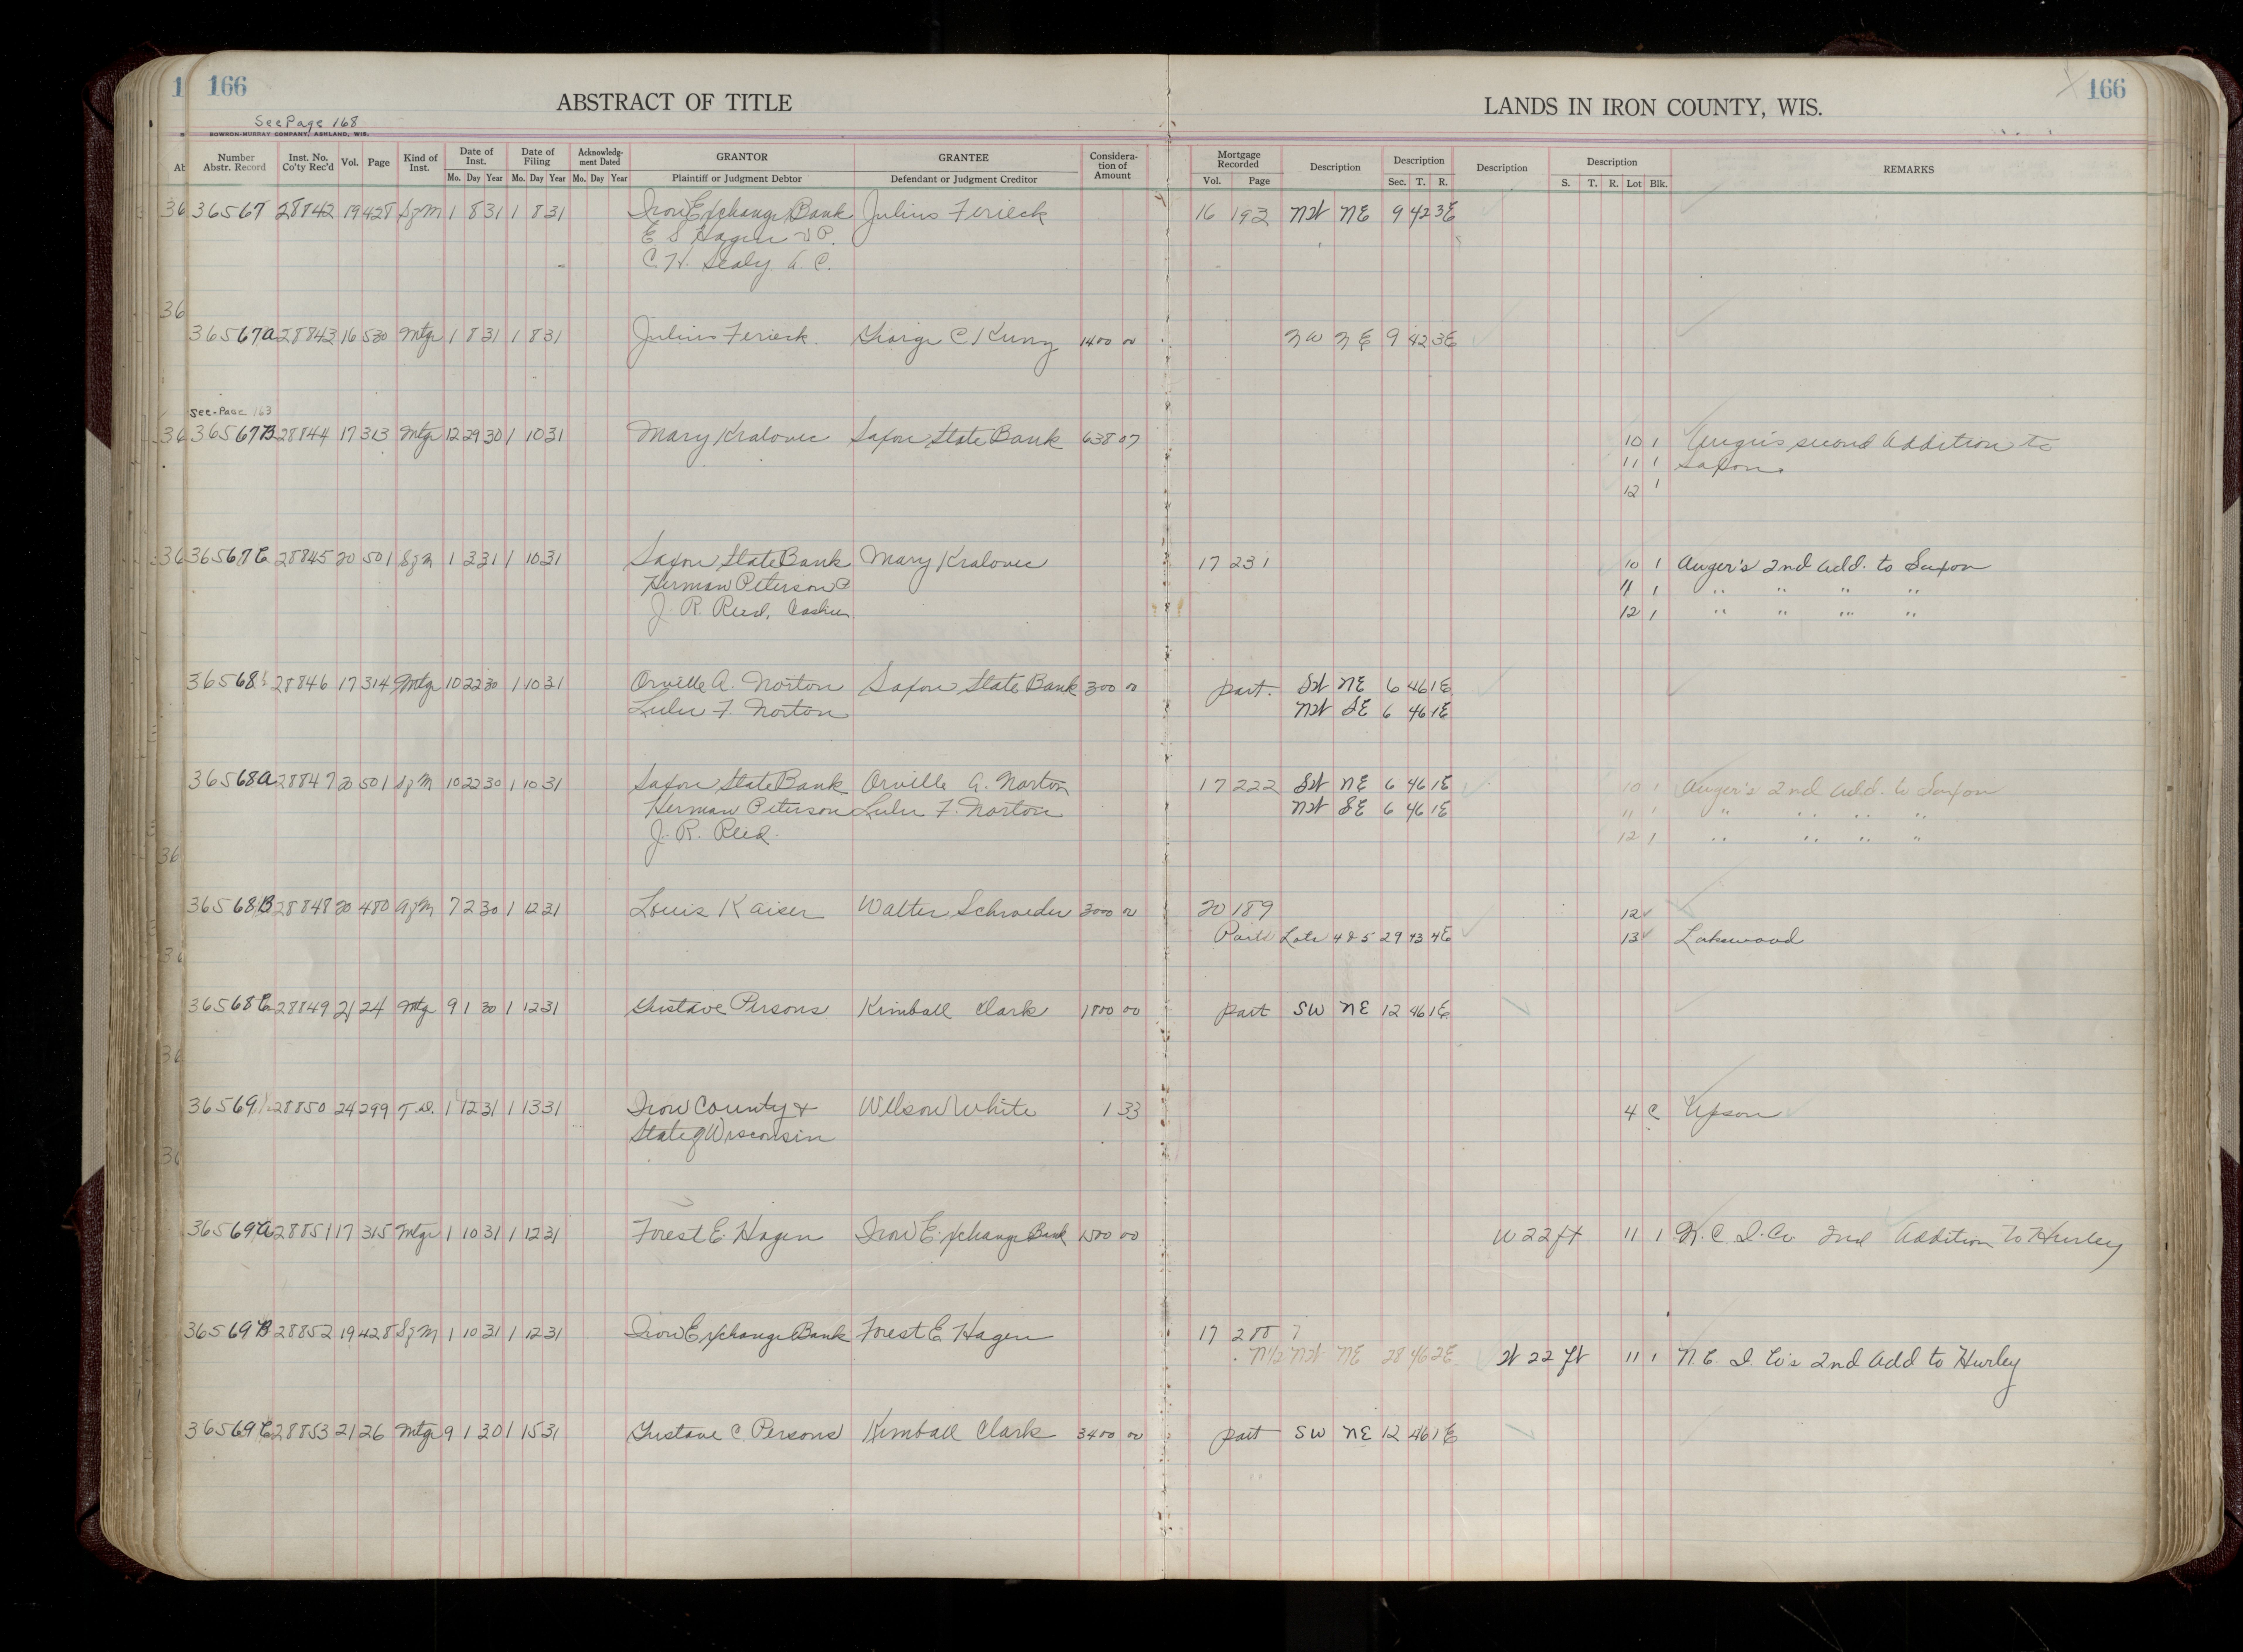 1 166
ABSTRACT OF TITLE
LANDS IN IRON COUNTY, WIS.
166
See Page 168
BOWRON-MURRAY COMPANY, ASHLAND, WIS.
Number Abstr. Record Inst. No. Co'ty Rec'd Vol. Page Kind of Inst. Date of Inst. Date of Filing Acknowledgment Dated GRANTOR GRANTEE Consideration of Amount Mortgage Recorded Description Description Description Description REMARKS
Mo. Day Year Mo. Day Year Mo. Day Year Plaintiff or Judgment Debtor Defendant or Judgment Creditor Vol. Page Sec. T. R. S. T. R. Lot Blk.
36567 28842 19 428 SgM 1 8 31 1 8 31 Iron Exchange Bank Julius Ferieck 16 192 NW NE 9 42 3E
E S Hagen VP.
C. H. Sealy A. C.
36567A 28843 16 530 Mtge 1 8 31 1 8 31 Julius Ferieck George C Kunz 1400 00 NW NE 9 42 3E
See-Page 163
36567B 28844 17 313 Mtge 12 29 30 1 10 31 Mary Kralovec Saxon State Bank 638 07 10 1 Auger's second Addition to
11 1 Saxon.
12 1
36567C 28845 20 501 SgM 1 2 31 1 10 31 Saxon State Bank Mary Kralovec 17 231 10 1 Auger's 2nd Add. to Saxon
Herman Peterson P 11 1 " " " "
J. R. Reid, Cashier 12 1 " " " "
36568 28846 17 314 Mtge 10 22 30 1 10 31 Orville A. Norton Saxon State Bank 300 00 part. SW NE 6 46 1E
Lulu F. Norton NW SE 6 46 1E
36568A 28847 20 501 SgM 10 22 30 1 10 31 Saxon State Bank Orville A. Norton 17 222 SW NE 6 46 1E 10 1 Auger's 2nd Add. to Saxon
Herman Peterson Lulu F. Norton NW SE 6 46 1E 11 1 " " " "
J. R. Reid. 12 1 " " " "
36568B 28848 20 480 AgM 7 2 30 1 12 31 Louis Kaiser Walter Schroeder 3000 00 20 189 12
Part Lots 4 & 5 29 43 4E 13 Lakewood
36568C 28849 21 24 Mtg 9 1 30 1 12 31 Gustave Persons Kimball Clark 1800 00 part SW NE 12 46 1E
36569 28850 24 299 T.D. 1 12 31 1 13 31 Iron County & Wilson White 1 33 4 C Upson
State of Wisconsin
36569A 28851 17 315 Mtge 1 10 31 1 12 31 Forest E. Hagen Iron Exchange Bank 1500 00 W 22 ft 11 1 N. C. I. Co 2nd Addition to Hurley
36569B 28852 19 428 SgM 1 10 31 1 12 31 Iron Exchange Bank Forest E Hagen 17 288
N1/2 NW NE 28 46 2E W 22 ft 11 1 N. C. I. Co's 2nd Add to Hurley
36569C 28853 21 26 Mtge 9 1 30 1 15 31 Gustave C Persons Kimball Clark 3400 00 part SW NE 12 46 1E